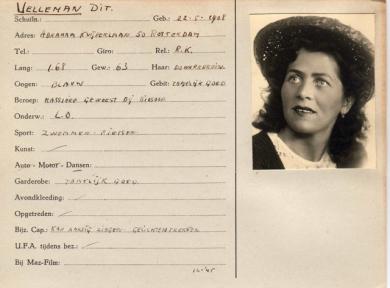 VELLEMAN DIT.
Schuiln.: Geb.: 22-5-1908
Adres: ABRAHAM KUYPERLAAN 50 ROTTERDAM
Tel.: Giro: Rel.: R.K.
Lang: 1.68 Gew.: 63 Haar: DONKERBRUIN
Oogen: BLAUW Gebit: TAMELIJK GOED
Beroep: GEWEEST BIJ
Onderw.: L.O.
Sport: ZWEMMEN - FIETSEN
Kunst: /
Auto - Motor - Dansen:
Garderobe: TAMELIJK GOED
Avondkleeding: /
Opgetreden: /
Bijz. Cap.: KAN AARDIG ZINGEN -
U.F.A. tijdens bez.: /
Bij Maz-Film: